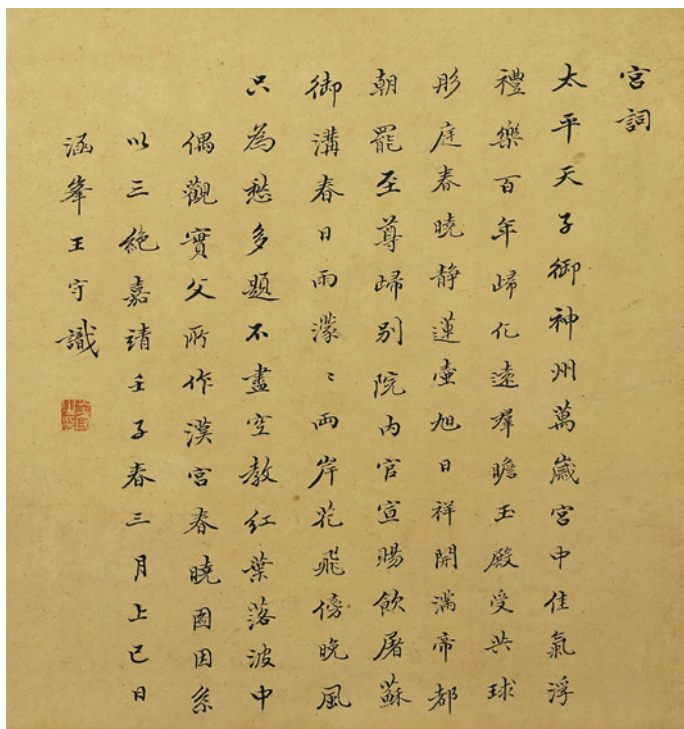 宮詞
太平天子御神州萬歲宮中佳氣浮
禮樂百年歸化遠群瞻玉殿受共球
彤庭春曉靜蓮壺旭日祥開滿帝都
朝罷至尊歸別院內官宣賜飲屠蘇
御溝春日雨濛〻兩岸花飛傍晚風
只為愁多題不盡空教紅葉落波中
偶觀實父所作漢宮春曉圖因系
以三絕嘉靖壬子春三月上巳日
涵峯王守識